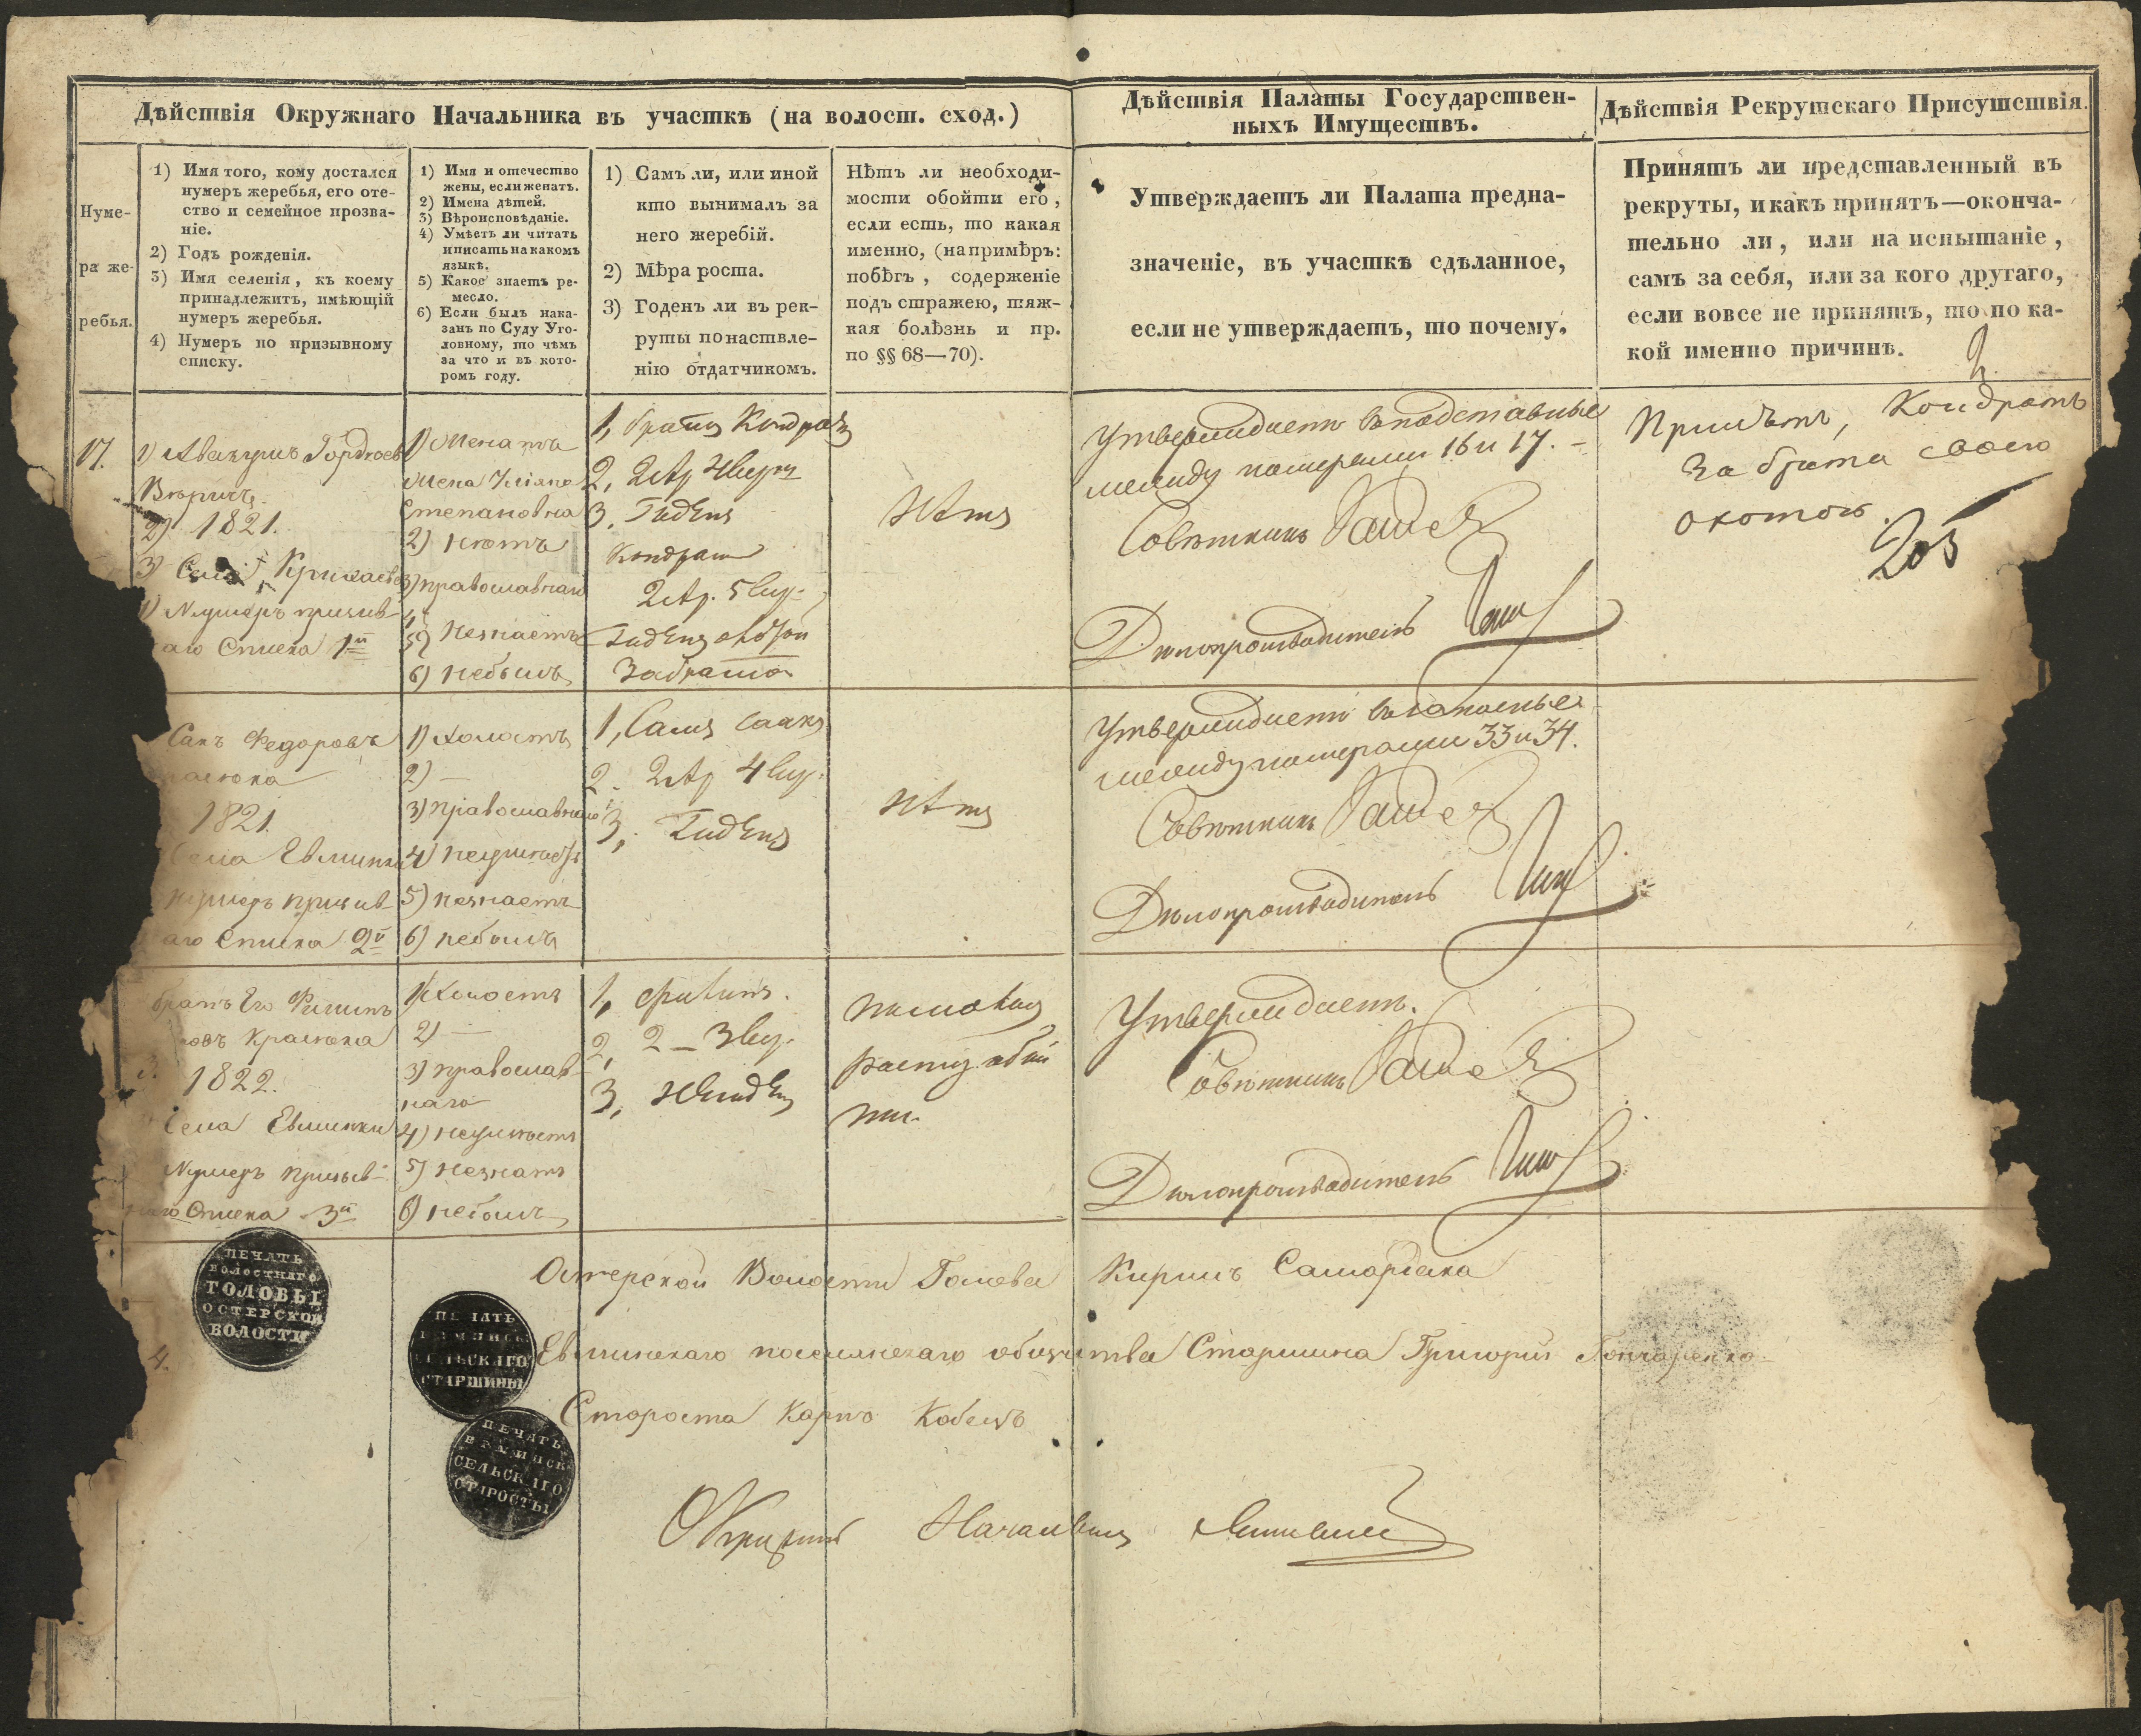 Дѣйствія Окружнаго Начальника въ участкѣ (на волост. сход.)
Нуме-
ра же-
ребья.
1) Имя того, кому достался
нумеръ жеребья, его оте-
ство и семейное прозва-
ніе.
2) Годъ рожденія.
3) Имя селенія, къ коему
принадлежитъ, имѣющій
нумеръ жеребья.
4) Нумеръ по призывному
списку.
1) Имя и отечество
жены, если женатъ.
2) Имена дѣтей.
3) Вѣроисповѣданіе.
4) Умѣетъ ли читать
и писать на какомъ
языкѣ.
5) Какое знаетъ ре-
месло.
6) Если былъ нака-
занъ по Суду Уго-
ловному, то чѣмъ
за что и въ кото-
ромъ году.
1) Самъ ли, или иной
кто вынималъ за
него жеребій.
2) Мѣра роста.
3) Годенъ ли въ рек-
руты по наствле-
нію отдатчикомъ.
Нѣтъ ли необходи-
мости обойти его,
если есть, то какая
именно, (напримѣръ:
побѣгъ, содержніе
подъ стражею, тяж-
кая болѣзнь и пр.
по §§ 68—70).
Дѣйствія Палаты Государствен-
ныхъ Имуществъ.
Утверждаетъ ли Палата предна-
значеніе, въ участкѣ сдѣланное,
если не утверждаетъ, то почему.
Дѣйствія Рекрутскаго Присутствія.
Принятъ ли представленный въ
рекруты, и какъ принятъ—оконча-
тельно ли, или на испытаніе,
самъ за себя, или за кого другаго,
если вовсе не принятъ, то по ка-
кой именно причинѣ.
17.
1) Авакумъ Гордѣевъ
2) 1821.
3) Села
4) Нумеръ призыв-
аго Списка 1й
1) Женатъ
жена Уліяна
Степановна
2) нѣтъ
3) православнаго
5) незнаетъ
6) небылъ
1, братъ Кондратъ
2,
3, Годенъ
Кондратъ
2 ар. 5 вер.
Годенъ
за брата
Нѣтъ
Утверждаетъ
между номерами 16 и 17.
Совѣтникъ
Дѣлопроизводитель
Принятъ, Кондратъ
за брата своего
охотою.
205
Сакъ Федоровъ
1821.
Села Евминки
нумеръ призыв
аго Списка 2й
1) Холостъ
2) —
3) православнаго
4) неумѣетъ
5) незнаетъ
6) небылъ
1, Самъ Саакъ
2. 2 ар 4 вер.
3, Годенъ
Нѣтъ
Утверждаетъ
между номерами 33 и 34.
Совѣтникъ
Дѣлопроизводитель
братъ Его Филипъ
1822.
Села Евминки
Нумеръ призыв-
наго Списка 3й
1) Холостъ
2) —
3) православ-
наго
4) неумѣетъ
5) незнаетъ
6) небылъ
1, Филипъ.
2, 2 — 3 вер.
3, Негоденъ
по малому
росту обой
ти.
Утверждаетъ.
Совѣтникъ
Дѣлопроизводитель
ПЕЧАТЬ
ВОЛОСТНАГО
ГОЛОВЫ
ОСТЕРСКОЙ
ВОЛОСТИ
4.
ПЕЧАТЬ
ЕВМИНСК
СЕЛЬСКАГО
СТАРШИНЫ
ПЕЧАТЬ
ЕВМИНСК
СЕЛЬСКАГО
СТАРОСТЫ
Остерской Волости Голова Кирилъ Самардака
Евминскаго поселянскаго общества Старшина Григорій Гончаренко
Староста Карпо Кобецъ
Окружный Начальникъ